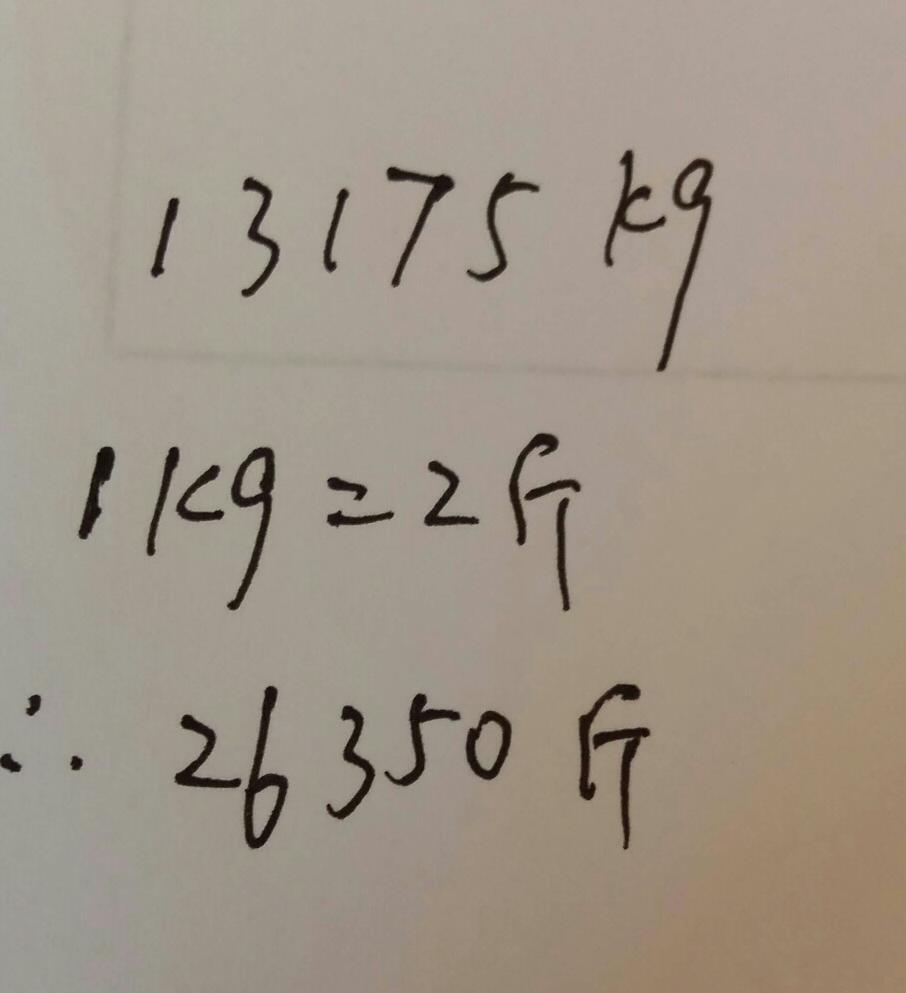 13175 kg
1 kg = 2斤
∴ 26350斤